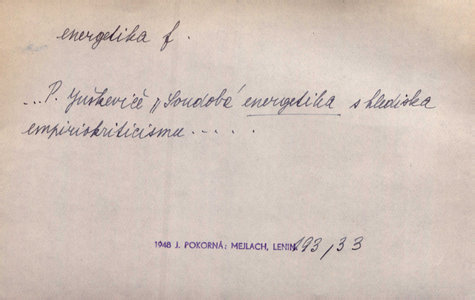 energetika f.
...P. Juškevič „Soudobá energetika s hlediska
empiriokriticismu.....
1948 J. POKORNÁ: MEJLACH, LENIN. 193/33